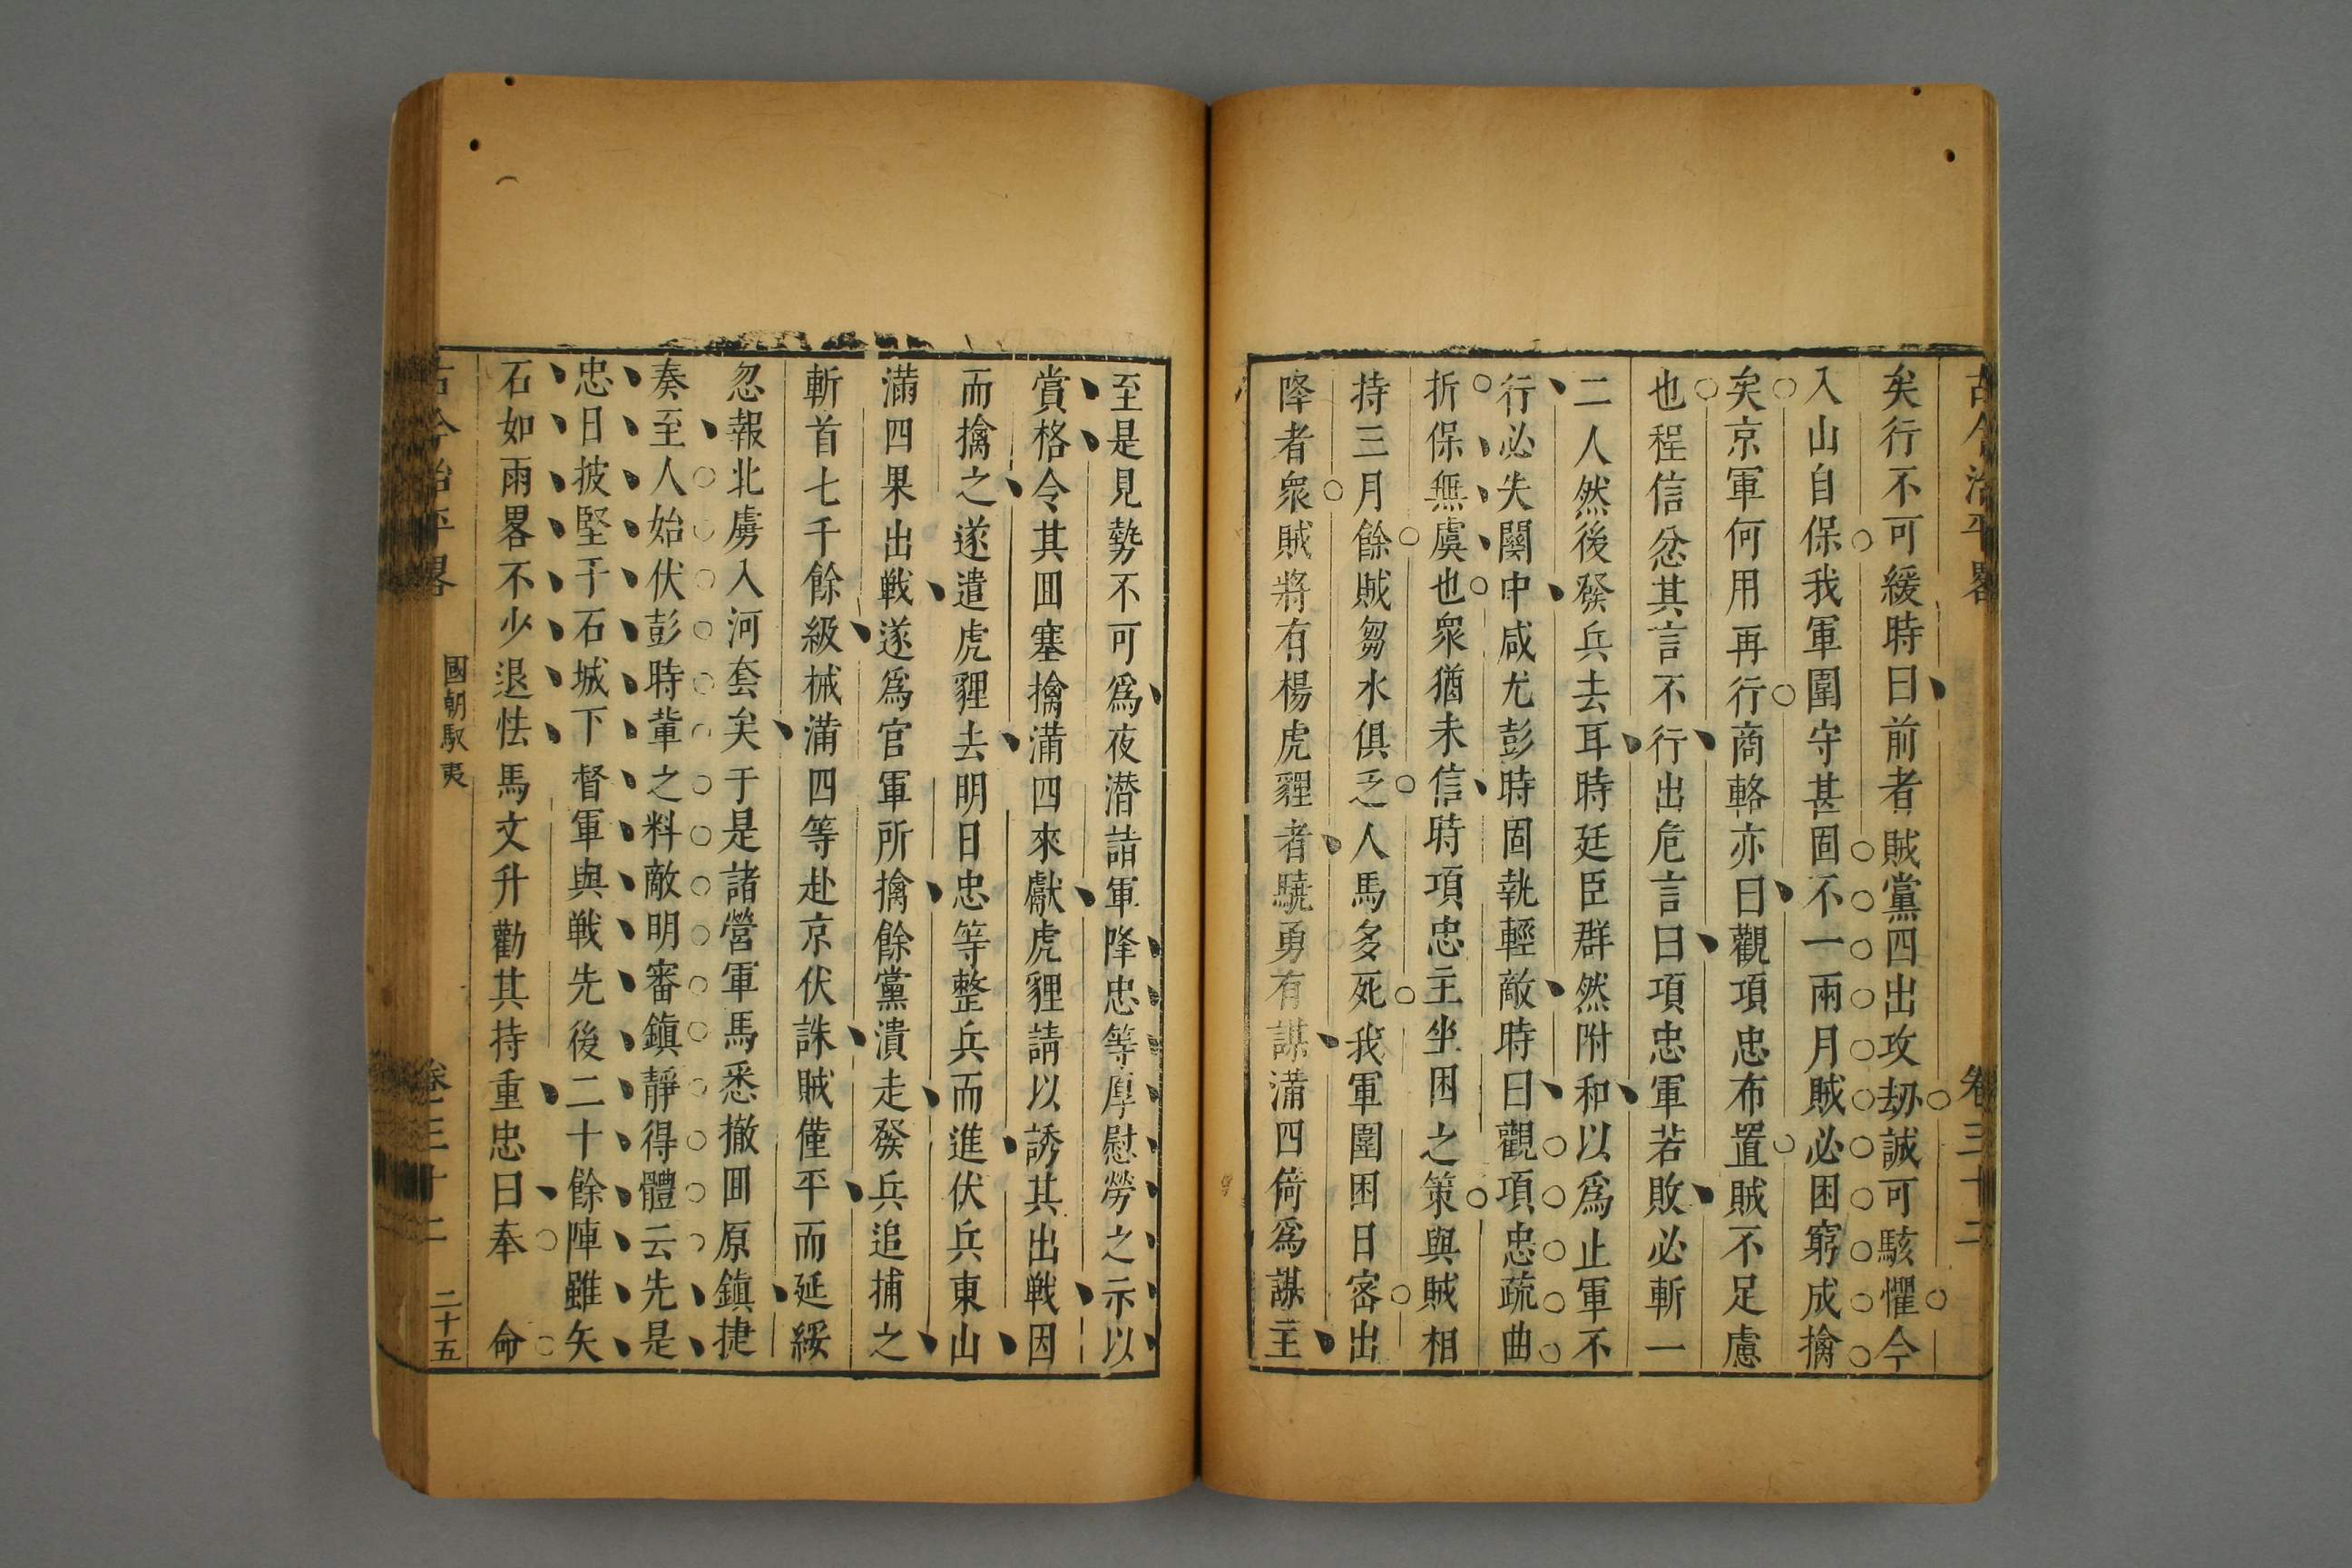 古今治平畧 卷三十二
矣行不可緩時曰前者賊黨四出攻刼誠可駭懼今
入山自保我軍圍守甚固不一兩月賊必困窮成擒
矣京軍何用再行商輅亦曰觀項忠布置賊不足慮
也程信忿其言不行出危言曰項忠軍若敗必斬一
二人然後發兵去耳時廷臣群然附和以爲止軍不
行必失關中咸尤彭時固執輕敵時曰觀項忠疏曲
折保無虞也衆猶未信時項忠主坐困之策與賊相
持三月餘賊芻水俱乏人馬多死我軍圍困日密出
降者衆賊將有楊虎貍者驍勇有謀滿四倚爲謀主
至是見勢不可爲夜潛詣軍降忠等厚慰勞之示以
賞格令其囬塞擒滿四來獻虎貍請以誘其出戰因
而擒之遂遣虎貍去明日忠等整兵而進伏兵東山
滿四果出戰遂爲官軍所擒餘黨潰走發兵追捕之
斬首七千餘級械滿四等赴京伏誅賊僅平而延綏
忽報北虜入河套矣于是諸營軍馬悉撤囬原鎮捷
奏至人始伏彭時軰之料敵明審鎮靜得體云先是
忠日披堅于石城下督軍與戰先後二十餘陣雖矢
石如雨畧不少退怯馬文升勸其持重忠曰奉 命
古今治平畧 國朝馭夷 卷三十二 二十五